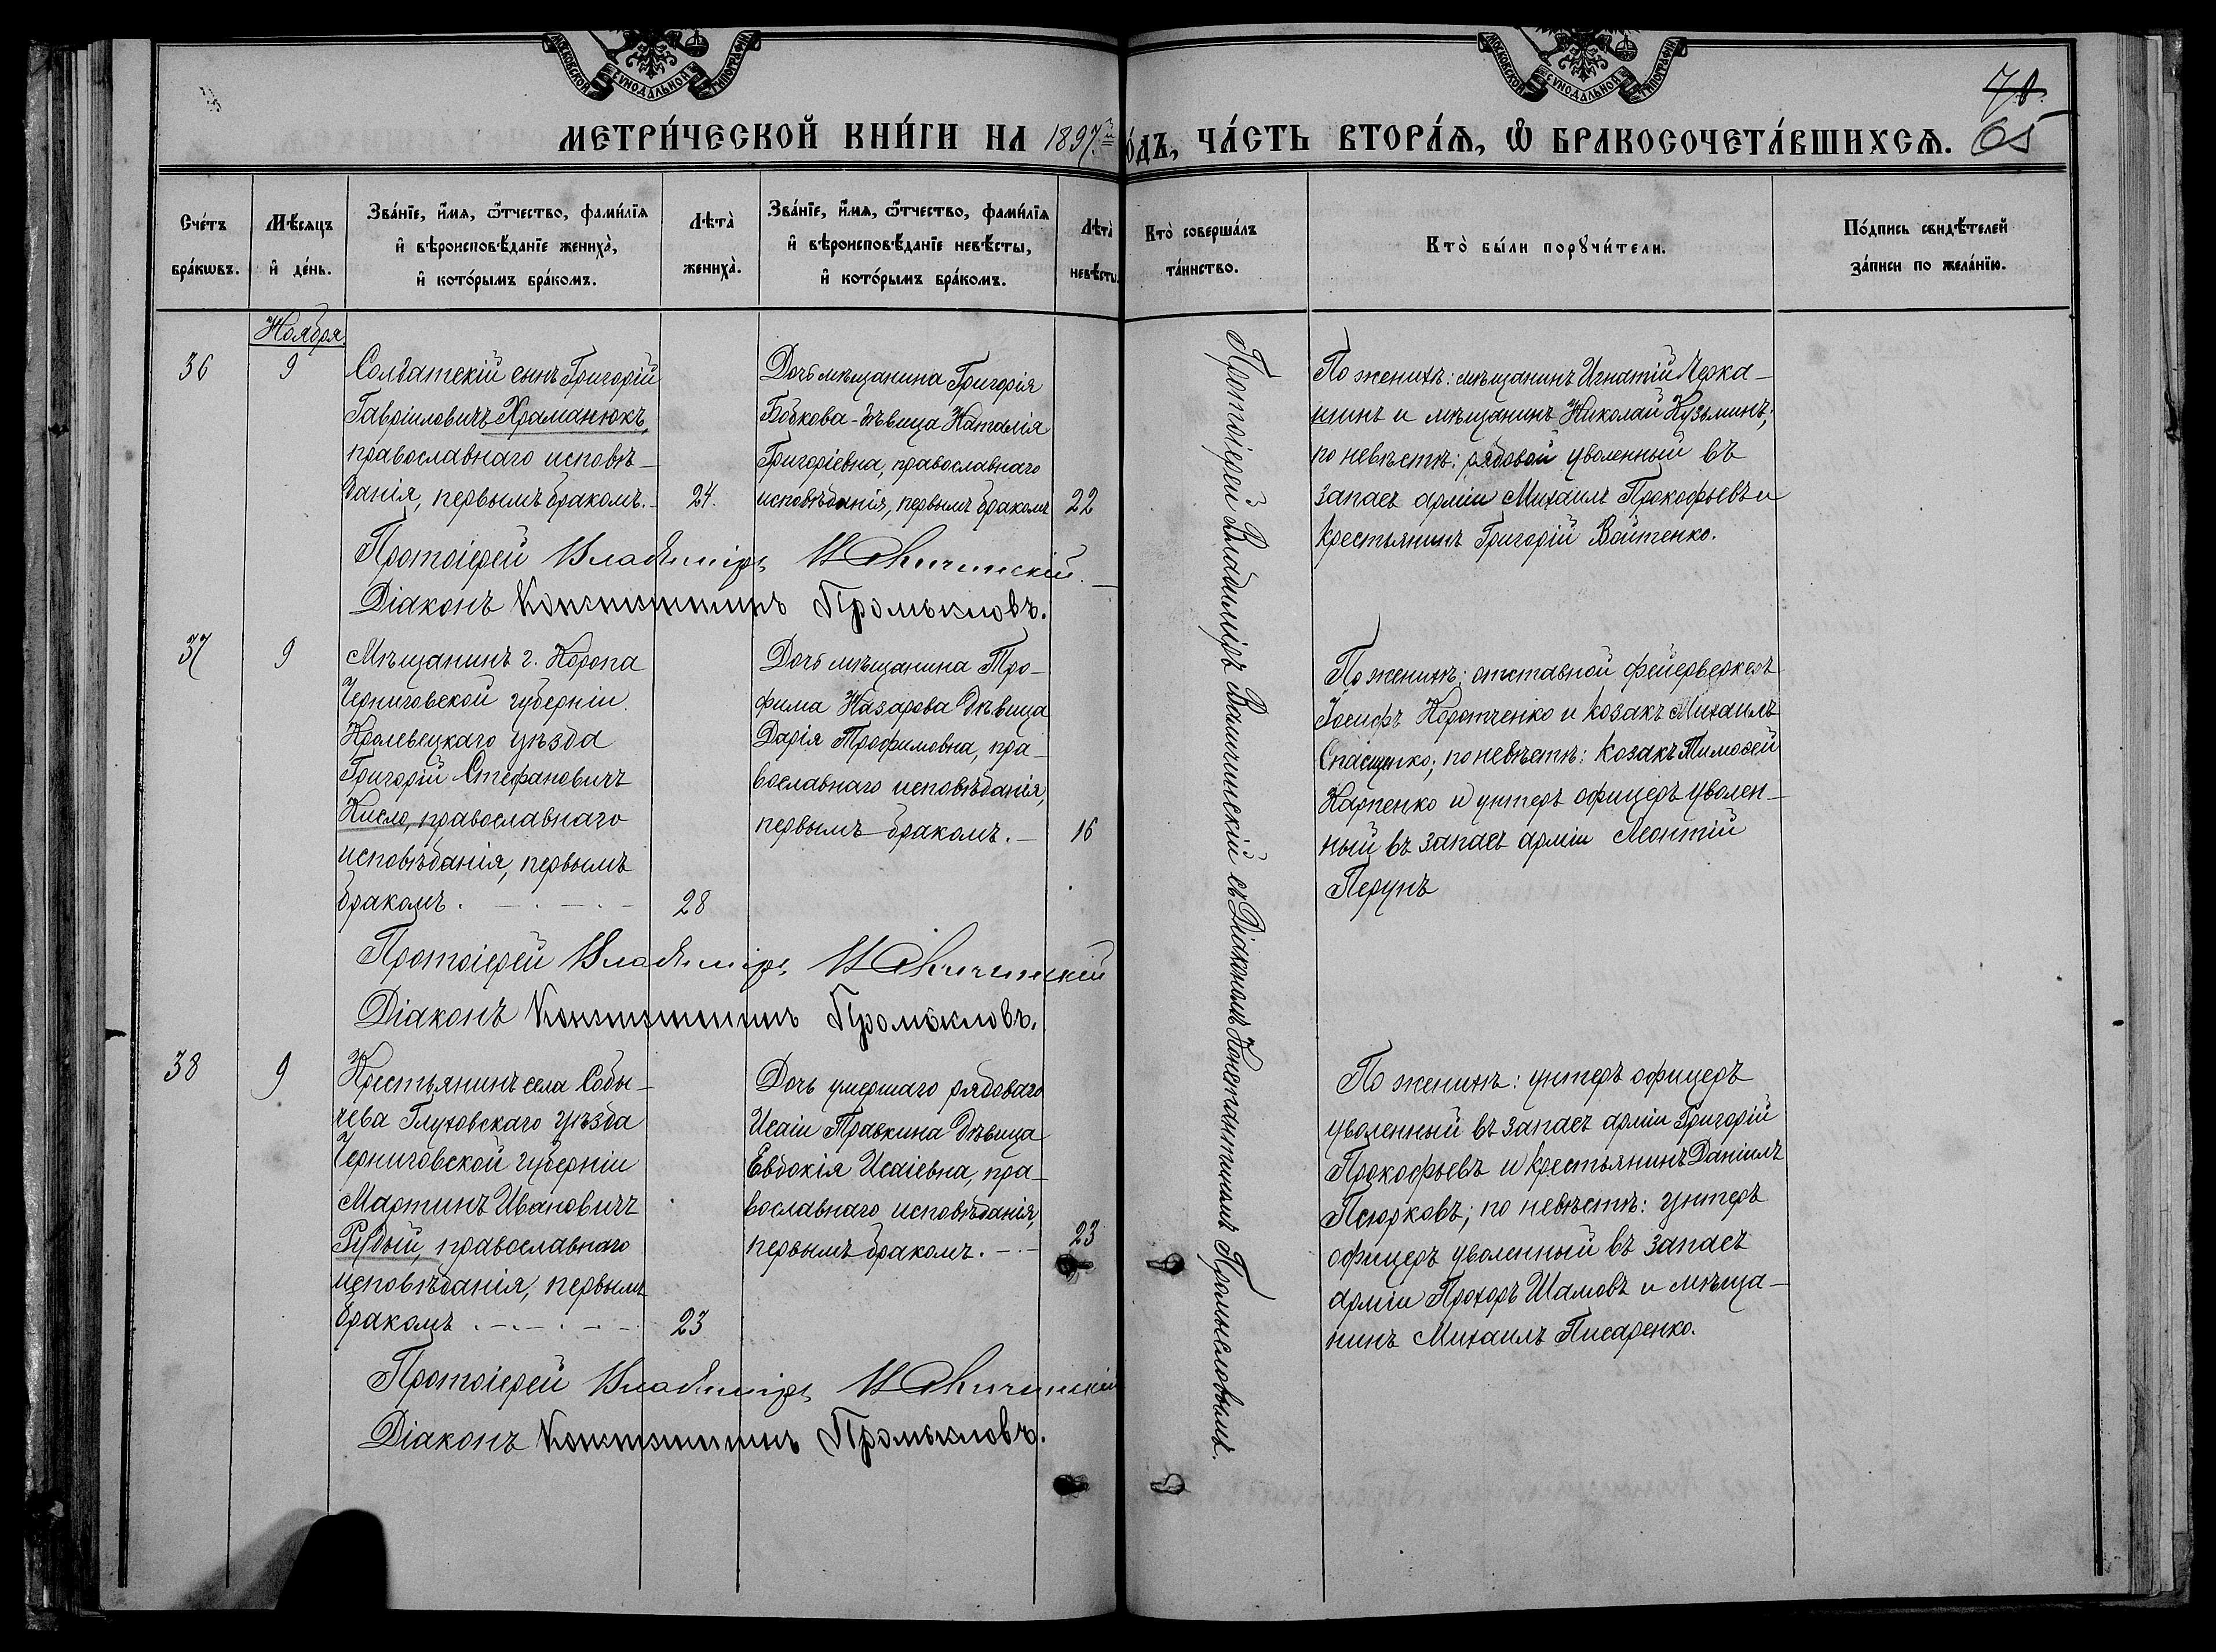 МОСКОВСКОЙ СѴНОДАЛЬНОЙ ТИПОГРАФІИ
МОСКОВСКОЙ СѴНОДАЛЬНОЙ ТИПОГРАФІИ
МЕТРИ́ЧЕСКОЙ КНИ́ГИ НА 1897й
О́ДЪ, ЧА́СТЬ ВТОРА́Ѧ, Ѿ БРАКОСОЧЕТА́ВШИХСѦ.
65
Сче́тъ
бра́кѡвъ.
Мѣ́сѧцъ
и҆ де́нь.
Зва́нїе, и҆́мѧ, ѻ҆́тчество, фами́лїѧ
и҆ вѣроисповѣ́данїе жениха̀,
и҆ кото́рымъ бра́комъ.
Лѣта̀
жениха̀.
Зва́нїе, и҆́мѧ, ѻ҆́тчество, фами́лїѧ
и҆ вѣроисповѣ́данїе невѣ́сты,
и҆ кото́рымъ бра́комъ.
Лѣта̀
невѣ́сты
Кто̀ соверша́лъ
та́инство.
Кто̀ бы́ли порꙋчи́тели.
По́дпись свидѣ́телей
за́писи по жела́нїю.
Ноября
36
9
Солдатскій сынъ Григорій
Гавріиловичъ Храманюкъ,
православнаго исповѣ-
данія, первымъ бракомъ.-
24.
Дочь мѣщанина Григорія
Бобкова - дѣвица Наталія
Григоріевна, православнаго
исповѣданія, первымъ бракомъ
22
По женихѣ: мѣщанинъ Игнатій Черка-
шинъ и мѣщанинъ Николай Кузьминъ;
по невѣстѣ: рядовой уволенный въ
запасъ арміи Михаилъ Прокофьевъ и
крестьянинъ Григорій Войтенко.
Протоіерей Владиміръ
Діаконъ Константинъ Промысловъ.
37
9
Мѣщанинъ г. Коропа
Черниговской губерніи
Кролевецкаго уѣзда
Григорій Стефановичъ
Кисло, православнаго
исповѣданія, первымъ
бракомъ. - . - . -
28
Дочь мѣщанина Тро-
фима Назарова дѣвица
Дарія Трофимовна, пра-
вославнаго исповѣданія,
первымъ бракомъ. -
16
По женихѣ: отставной фейерверкеръ
Іосифъ Коротченко и козакъ Михаилъ
Спащенко; по невѣстѣ: козакъ Тимофей
Карпенко и унтеръ офицеръ уволен-
ный въ запасъ арміи Леонтій
Перунъ
Протоіерей Владиміръ
Діаконъ Константинъ Промысловъ.
38
9
Крестьянинъ села Собы-
чева Глуховскаго уѣзда
Черниговской губерніи
Мартинъ Ивановичъ
Рудый, православнаго
исповѣданія, первымъ
бракомъ . - . - . - . -
23
Дочь умершаго рядоваго
Исаіи Травкина дѣвица
Евдокія Исаіевна, пра-
вославнаго исповѣданія,
первымъ бракомъ. - . -
23
По женихѣ: унтеръ офицеръ
уволенный въ запасъ арміи Григорій
Прокофьевъ и крестьянинъ Даніилъ
Псюрковъ; по невѣстѣ: унтеръ
офицеръ уволенный въ запасъ
арміи Прохоръ Шамовъ и мѣща-
нинъ Михаилъ Писаренко.
Протоіерей Владиміръ
Діаконъ Константинъ Промысловъ.
Протоіерей Владиміръ съ Діакономъ Константиномъ Промысловымъ.